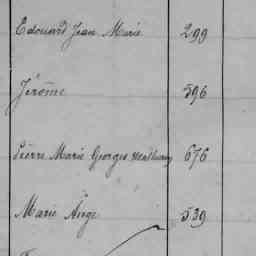 Edouard Jean Marie 299
Jérôme 596
Pierre Marie Georges 676
Marie Ange 539